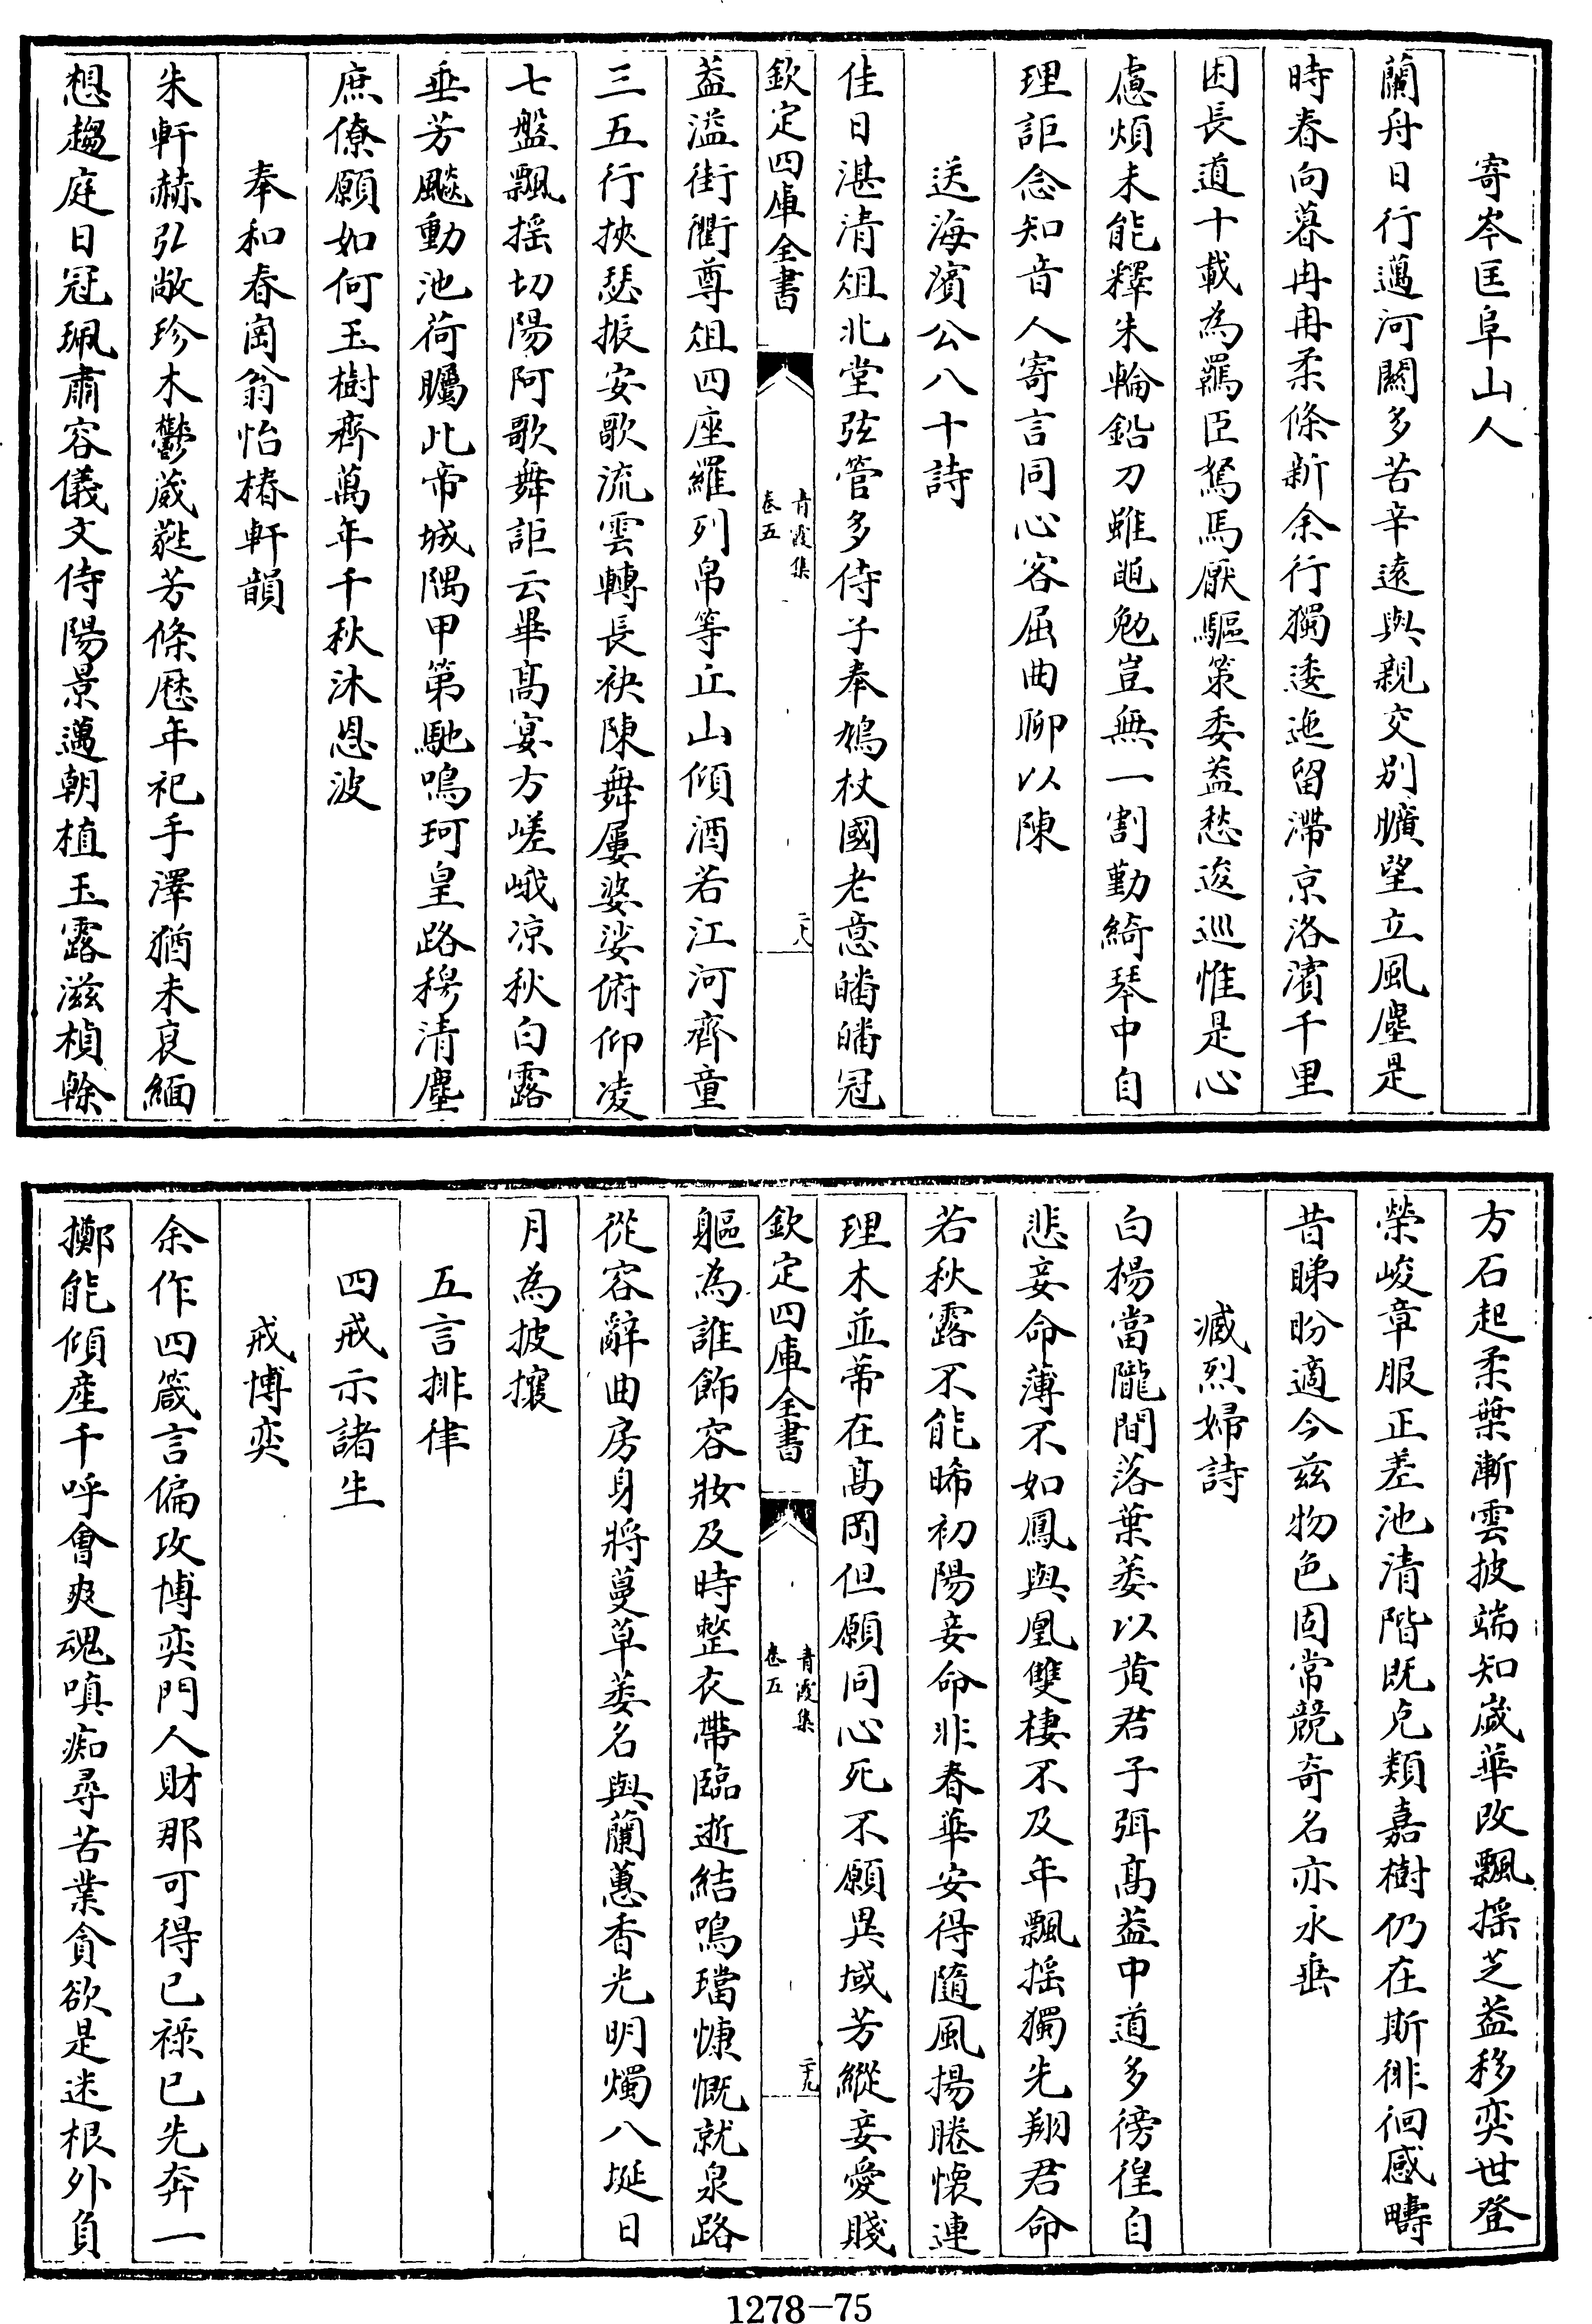 寄岑匡阜山人
蘭舟日行邁河闗多苦辛遠與親交别曠望立風塵是
時春向暮冉冉柔條新余行獨逶迤留滯京洛濱千里
困長道十載為羈臣駑馬厭驅策委益愁逡巡惟是心
慮煩未能釋朱輪鉛刀雖黽勉豈無一割勤綺琴中自
理詎念知音人寄言同心客屈曲聊以陳
送海濱公八十詩
佳日湛清俎北堂弦管多侍子奉鳩杖國老意皤皤冠
欽定四庫全書
青霞集
卷五
二十八
葢溢街衢尊俎四座羅列帛等丘山傾酒若江河齊童
三五行挾瑟振安歌流雲轉長袂陳舞屢婆娑俯仰凌
七盤飄揺切陽阿歌舞詎云畢髙宴方嵯峨凉秋白露
垂芳飈動池荷矚此帝城隅甲第馳鳴珂皇路穆清塵
庶僚願如何玉樹齊萬年千秋沐恩波
奉和春岡翁怡椿軒韻
朱軒赫弘敞珍木鬱葳蕤芳條歴年祀手澤猶未衰緬
想趨庭日冠珮肅容儀文侍陽景邁朝植玉露滋楨榦
方石起柔葉漸雲披端知歲華改飄揺芝葢移奕世登
榮峻章服正差池清階既克類嘉樹仍在斯徘徊感疇
昔睇盼適今兹物色固常競奇名亦永垂
臧烈婦詩
白楊當隴間落葉萎以黄君子弭髙葢中道多徬徨自
悲妾命薄不如鳳與凰雙棲不及年飄揺獨先翔君命
若秋露不能晞初陽妾命非春華安得隨風揚睠懐連
理木並蒂在髙岡但願同心死不願異域芳縱妾愛賤
欽定四庫全書
青霞集
卷五
二十九
軀為誰飾容妝及時整衣帶臨逝結鳴璫慷慨就泉路
從容辭曲房身將蔓草萎名與蘭蕙香光明燭八埏日
月為披攘
五言排律
四戒示諸生
戒博奕
余作四箴言偏攻博奕門人財那可得已祿已先奔一
擲能傾産千呼會爽魂嗔痴尋苦業貪欲是迷根外負
1278—75